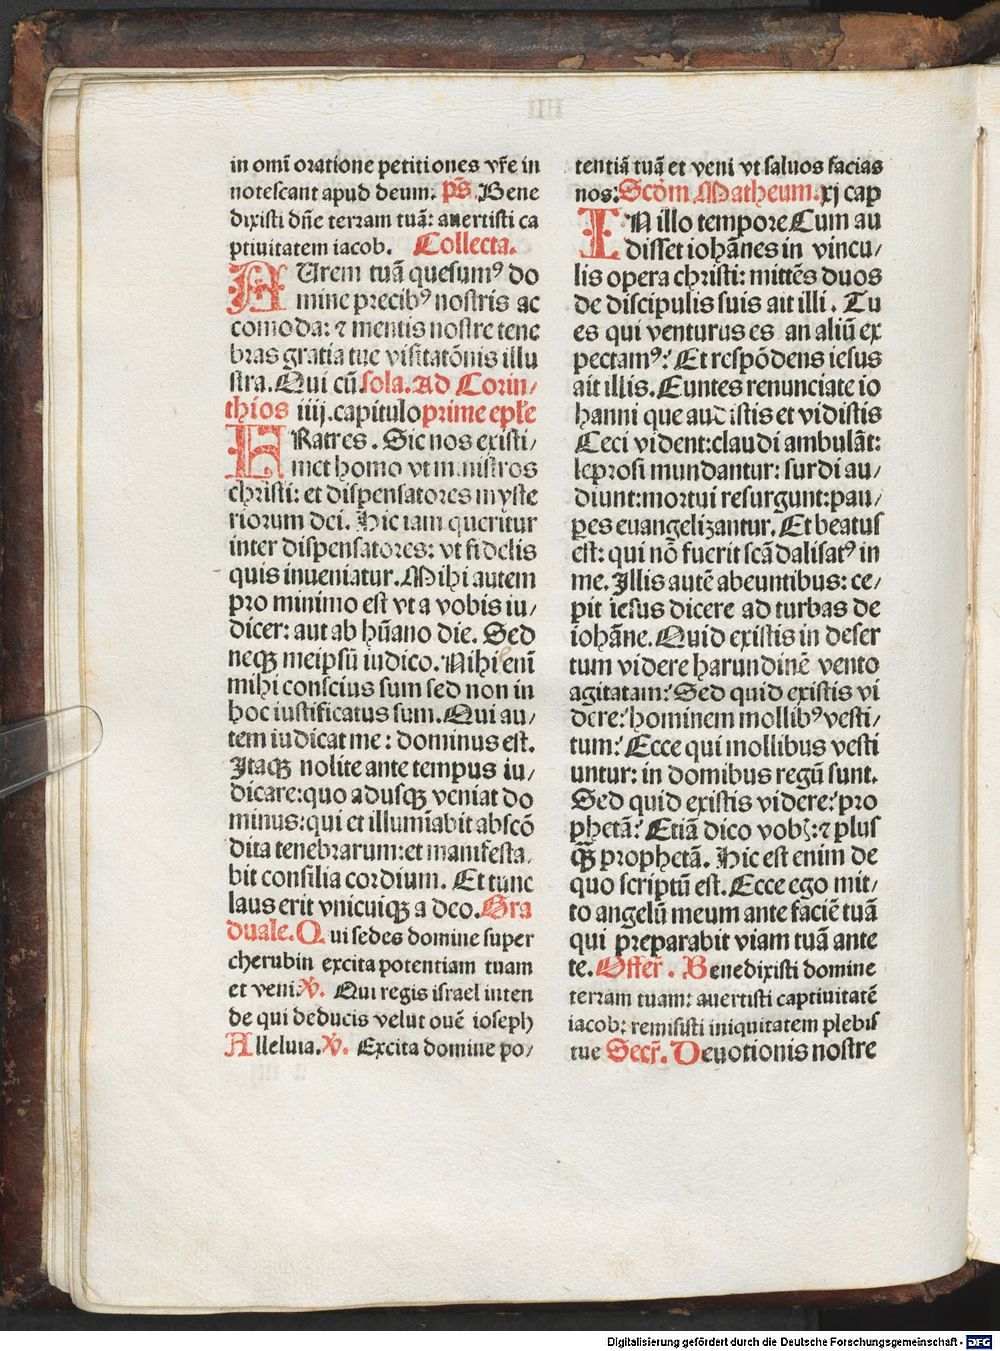 in omī oratione petitiones vr̄e in
notescant apud deum. p̄s. Bene
dixisti dn̄e terram tuā: auertisti ca
ptiuitatem iacob. Collecta.
AUrem tuā quesumꝰ do
mine precibꝰ nostris ac
comoda: ⁊ mentis nostre tene
bras gratia tue visitatōnis illu
stra. Qui cū sola. Ad Corin/
thios iiij. capitulo prime ep̄le
FRatres. Sic nos existi/
met homo vt ministros
christi: et dispensatores myste
riorum dei. Hic iam queritur
inter dispensatores: vt fidelis
quis inueniatur. Mihi autem
pro minimo est vt a vobis iu/
dicer: aut ab hūano die. Sed
neqꝫ meipsū iudico. Nihil enī
mihi conscius sum sed non in
hoc iustificatus sum. Qui au/
tem iudicat me: dominus est.
Itaqꝫ nolite ante tempus iu/
dicare: quo adusqꝫ veniat do
minus: qui et illumīabit abscō
dita tenebrarum: et manifesta/
bit consilia cordium. Et tunc
laus erit vnicuiqꝫ a deo. Gra
duale. Qui sedes domine super
cherubin excita potentiam tuam
et veni. V̄. Qui regis israel inten
de qui deducis velut ouē ioseph
Alleluia. V̄. Excita domine po/
tentiā tuā et veni vt saluos facias
nos: Scd̄m Matheum. xj cap
IN illo tempore Cum au
disset iohānes in vincu/
lis opera christi: mittēs duos
de discipulis suis ait illi. Tu
es qui venturus es an aliū ex
pectamꝰ? Et respōdens iesus
ait illis. Euntes renunciate io
hanni que audistis et vidistis
Ceci vident: claudi ambulāt:
leprosi mundantur: surdi au/
diunt: mortui resurgunt: pau/
peres euangelizantur. Et beatus
est: qui nō fuerit scādalisatꝰ in
me. Illis autē abeuntibus: ce/
pit iesus dicere ad turbas de
iohāne. Quid existis in deser
tum videre harundinē vento
agitatam? Sed quid existis vi
dere? hominem mollibꝰ vesti/
tum? Ecce qui mollibus vesti
untur: in domibus regū sunt.
Sed quid existis videre? pro
phetā? Etiā dico vobꝭ: ⁊ plus
qꝫ̄ prophetā. Hic est enim de
quo scriptū est. Ecce ego mit/
to angelū meum ante faciē tuā
qui preparabit viam tuā ante
te. Offer̄. Benedixisti domine
terram tuam: auertisti captiuitatē
iacob: remisisti iniquitatem plebis
tue Secr̄. Deuotionis nostre
Digitalisierung gefördert durch die Deutsche Forschungsgemeinschaft - DFG